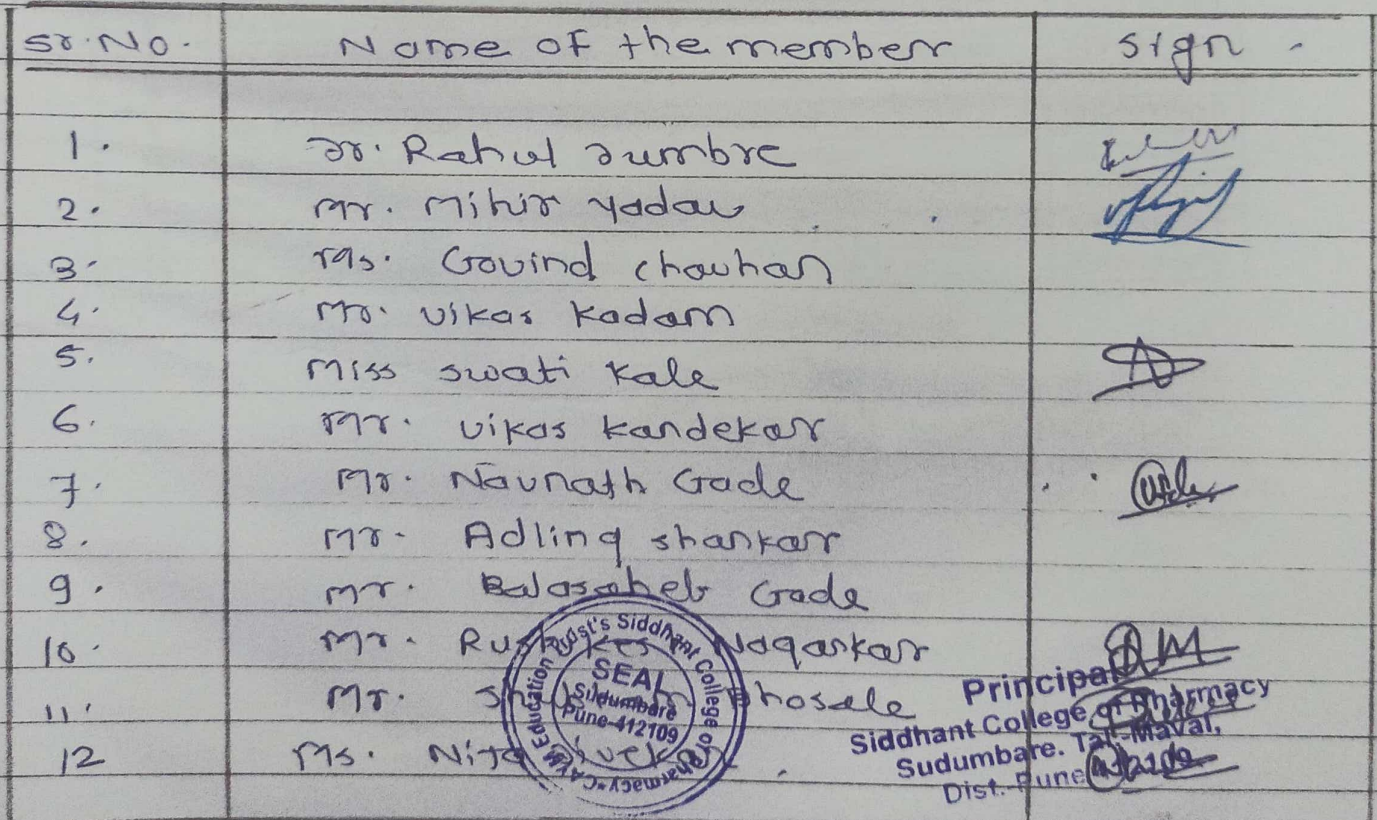 Sr. No. Name of the member sign
1. Dr. Rahul Dumbre
2. Mr. Mihir Yadav
3. Ms. Govind chouhan
4. Mr. vikas Kadam
5. Miss swati Kale
6. Mr. vikas kandekar
7. Mr. Navnath Gade
8. Mr. Adling shankar
9. Mr. Balasaheb Gade
10. Mr. Nagarkar
11. Mr. Bhosale
12 Ms. Nita
Education Trust's Siddhant College of Pharmacy
SEAL
Sudumbare
Pune-412109
Principal
Siddhant College of Pharmacy
Sudumbare. Tal-Maval,
Dist. Pune 412109